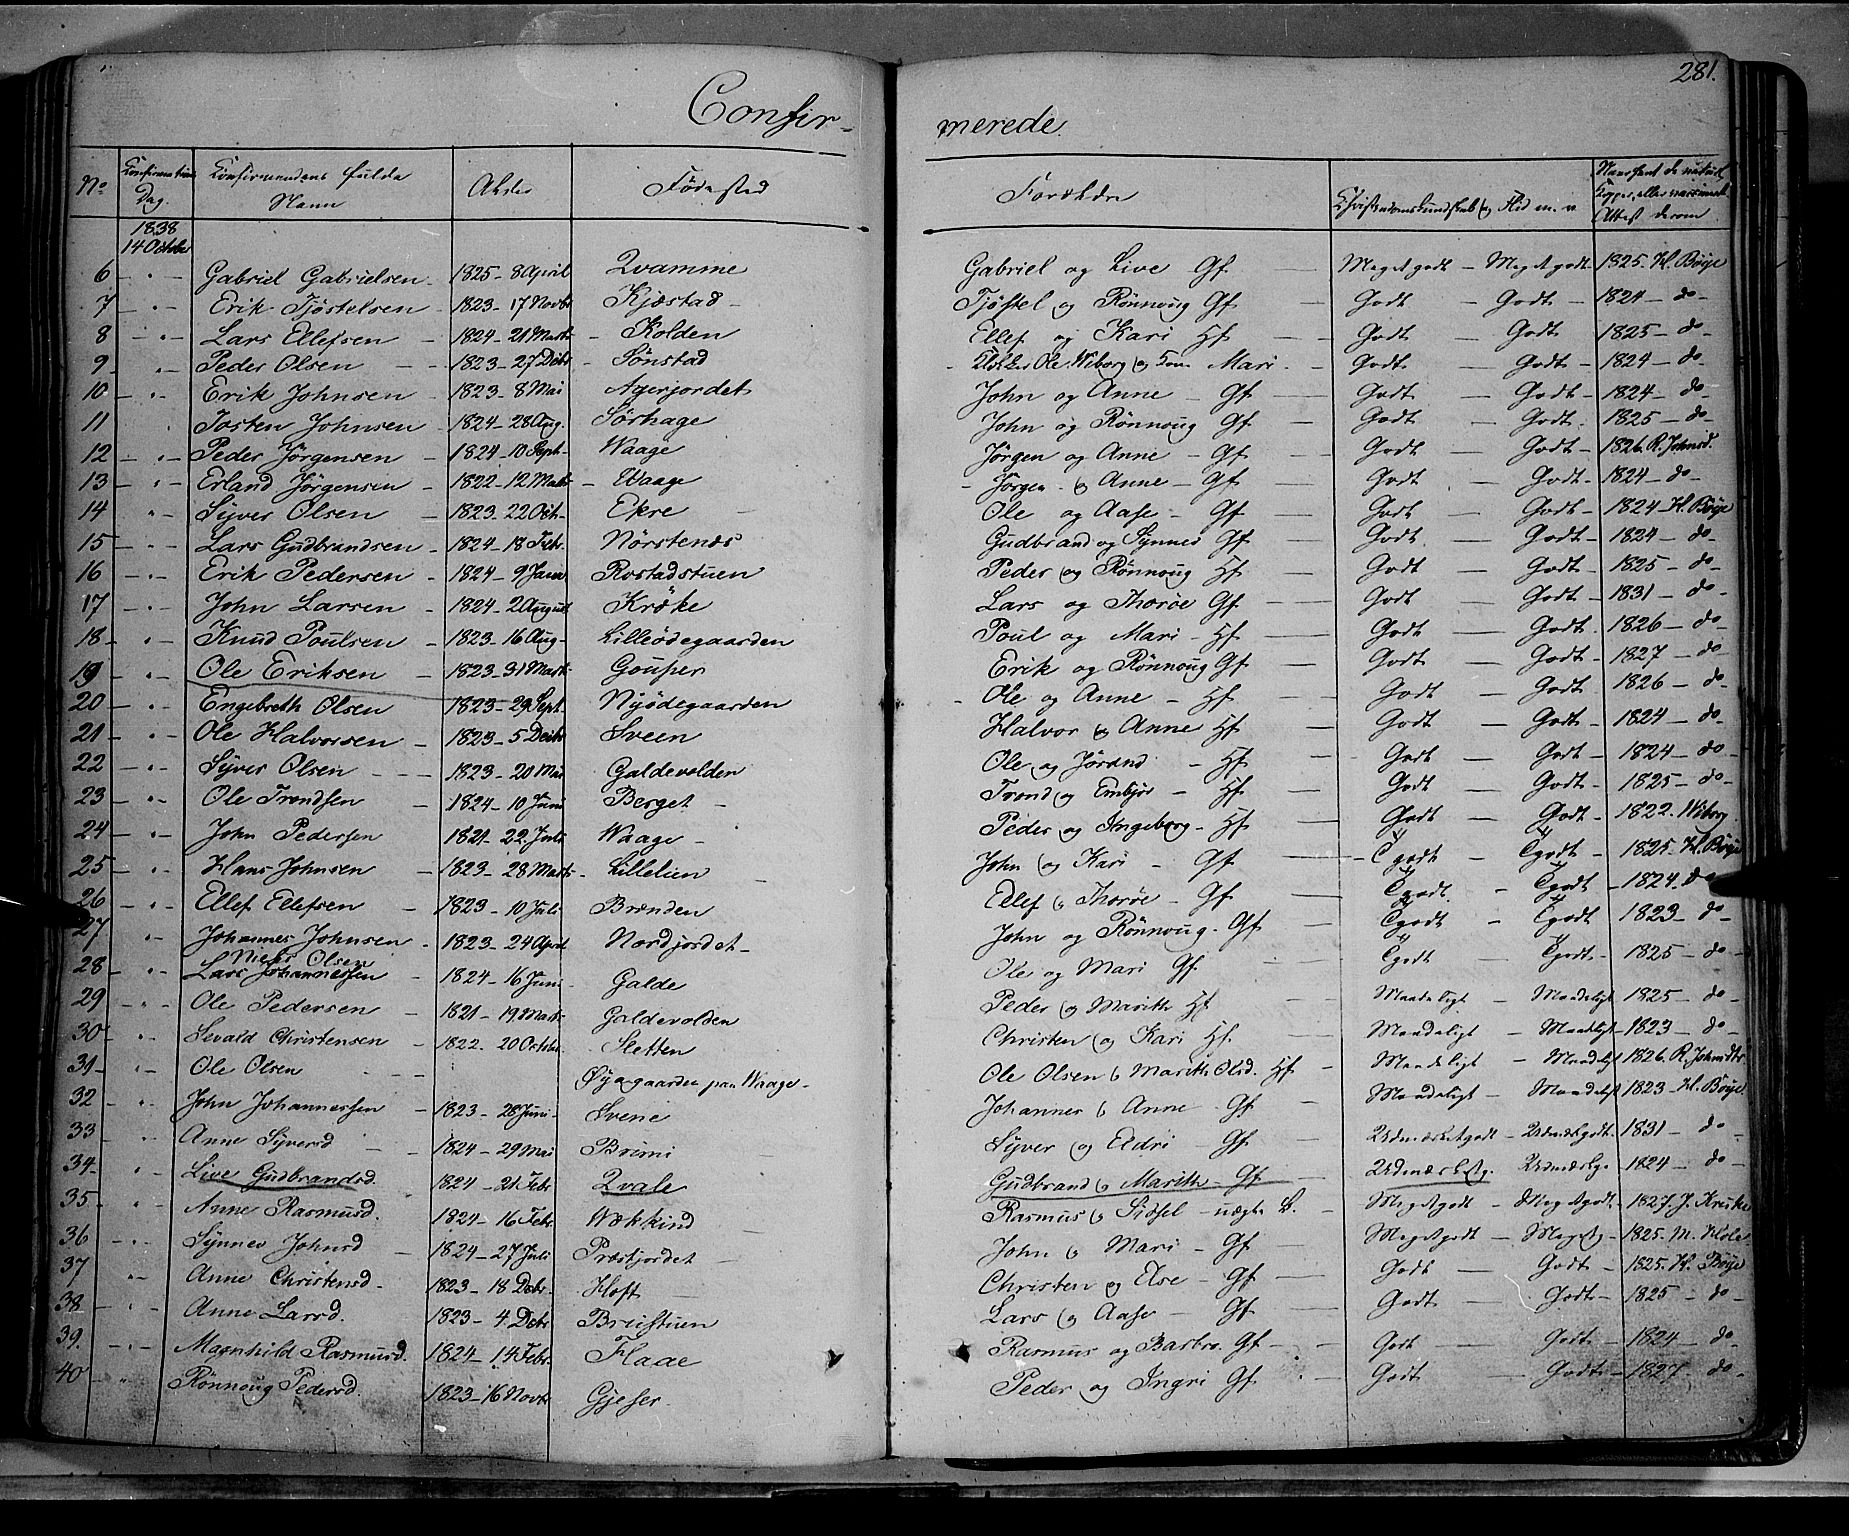 281.
Confirmerede.
No Confirmations Dag. Confirmandens fulde Navn Alder Fødested Forældre Christendomskundskab og Flid m. v. Attest derom
1838
14 Octobr
6 - " - Gabriel Gabrielsen - 1825 - 8 April Qvamme Gabriel og Live Gf. - Meget godt - Meget godt - 1825. H. Bøije
7 - " - Erik Tjøstelsen - 1823 - 17 Novbr Kjæstad - Tjøstel og Rønnoug Gf - Godt - Godt - 1824 - do -
8 - " - Lars Ellefsen - 1824 - 21 Marts - Kolden Ellef og Kari Hf - Godt - Godt - 1825 - do -
9 " Peder Olsen - - 1823 - 27 Debr - Sønstad - Klokker Ole Wiborg og Mari - Godt - Godt - 1824 - do
10 - " - Erik Johnsen - 1823 - 8 Mai Agerjordet John og Anne - Gf - Godt - Godt - 1824 - do -
11 Josten Johnsen - 1824 - 28 Aug. Sørhage John og Rønnoug Gf - Godt - Godt - 1825 - do -
12 - " - Peder Jørgensen - 1824 - 10 Sept - Waage - Jørgen og Anne - Gf - Godt - Godt - 1826. R. Johnsd.
13 - " - Erland Jørgensen - 1822 - 12 Marts - Waage - Jørgen - og Anne - Gf - Godt - Godt - 1824 - do -
14 " Syver Olsen - 1823 - 22 Oct - Ekre - Ole og Aase - Gf - Godt - Godt - 1824 - H. Bøije
15 - " - Lars Gudbrandsen - 1824 - 18 Febr. Nørstenæs Gudbrand og Synnev Gf - Godt - Godt - 1824 - do -
16 - " - Erik Pedersen - 1824 - 9 Janu Rostadstuen Peder og Rønnoug Hf - Godt - Godt - 1825 - do
17 - " - John Larsen - 1824 - 2 August Krøke Lars og Thorøe Gf - Godt - Godt - 1831 - do -
18 - " - Knud Poulsen - 1823 - 16 Aug - Lilleødegaarden Poul og Mari - Hf - Godt - Godt - 1826 - do -
19 - " Ole Eriksen - 1823 - 31 Marts - Gouper Erik og Rønnoug Gf - Godt - Godt - 1827 - do
20 - " - Engebreth Olsen 1823 - 29 Sept - Nyødegaarden - Ole og Anne - Hf - Godt - Godt - 1826 - do
21 - " - Ole Halvorsen - 1823 - 5 Decbr Sveen Halvor og Anne Hf - Godt - Godt - 1824 - do
22 - " - Syver Olsen - - - 1823 - 20 Mai Galdevolden Ole og Jørand - Hf - Godt - Godt - 1824 - do
23 - " - Ole Trondsen - 1824 - 10 Juni Berget - Trond og Embjør - Hf - Godt - Godt - 1825 - do -
24 - " - John Pedersen 1821 - 22 Juli Waage - Peder og Ingeborg - Hf - Godt - Godt - 1822. Wiborg
25 - " - Hans Johnsen - 1823 - 28 Marts - Lillelien - John og Kari - Gf - Tgodt - Tgodt - 1825 - H. Bøije
26 - " - Ellef Ellefsen - 1823 - 10 Juli Brenden Ellef og Thorøe - Gf - Tgodt. - Tgodt - 1824. do
27 " Johannes Johnsen - 1823 - 24 April Nordjordet - John og Rønnoug - Gf - Tgodt - Tgodt - 1823 - do
Niels Olsen
28 - " - Lars Johannessen 1824 - 16 Juni - Galde Ole og Mari Gf. - Tgodt - Tgodt - 1825 - do
29 - " - Ole Pedersen - 1821 - 19 Marts - Galdevolden Peder og Marith Hf - Maadeligt - Maadeligt 1825 - do -
30 - " - Sevald Christensen 1822. 20 Octobr. Sletten Christen og Kari Hf - Maadeligt - Maadeligt - 1823 - do -
31 - " Ole Olsen - - - Øygaarden paa Waage - Ole Olsen og Marith Olsd. Hf - Maadeligt - Maadeligt 1826. R. Johnsdtr
32 " John Johannessen - 1823 - 28 Juni - Svene Johannes og Anne - Gf - Maadeligt - Maadeligt 1823 - H. Bøije
33 " Anne Syversd - - 1824 - 29 Mai Brimi - Syver og Eldri - Gf - Udmærket godt - Udmærket godt - 1831 - do -
34 - " Live Gudbrandsd. 1824 - 21 Febr Qvale Gudbrand og Marith - Gf - Udmærket g. Udmærket g - 1824 - do
35 - " Anne Rasmusd. 1824 - 16 Febr. Wækkind - Rasmus og Sidsel - uægte B. - Meget godt - Meget godt. - 1827. J. Kruke
36 - " - Synnev Johnsd - 1824 - 27 Juli - Præstjordet - John og Mari - Gf - Meget godt - Meget g - 1825. M.
37 " - Anne Christensd - 1823 - 18 Debr. Hoft - Christen og Else - Gf - Godt - Godt - 1825. H. Bøije
38 - " - Anne Larsd. 1823 - 4 Debr Bristuen Lars og Aase - Gf - Godt - Godt - 1825 - do -
39. - " - Magnhild Rasmusd. 1824 - 14 Febr. Flaae Rasmus og Barbro. Gf - Godt - Godt - 1824 - do
40 - " Rønnoug Pedersd. 1823 - 16 Novbr Gjeser Peder og Ingri Gf - Godt - Godt - 1827 - do -